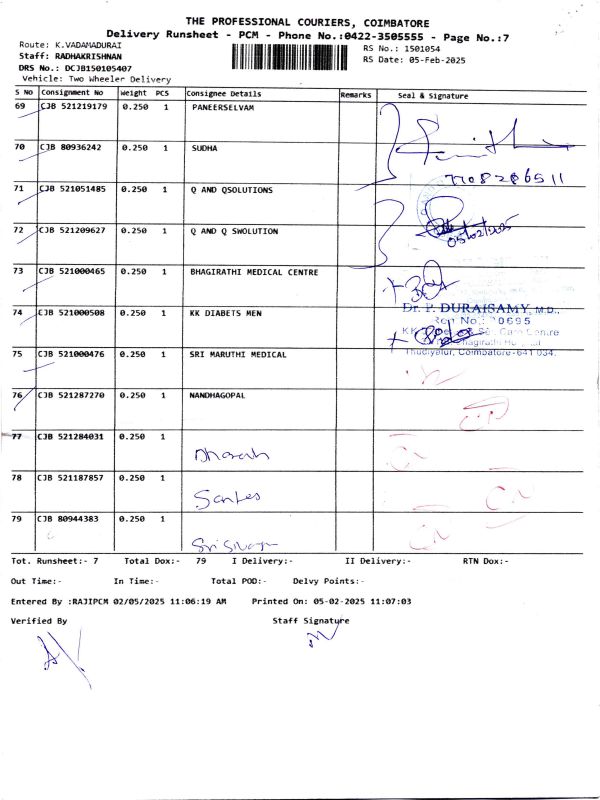 THE PROFESSIONAL COURIERS, COIMBATORE
Delivery Runsheet - PCM - Phone No.:0422-3505555 - Page No.:7
Route: K.VADAMADURAI RS No.: 1501054
Staff: RADHAKRISHNAN RS Date: 05-Feb-2025
DRS No.: DCJB150105407
Vehicle: Two Wheeler Delivery
S No Consignment No Weight PCS Consignee Details Remarks Seal & Signature
69 CJB 521219179 0.250 1 PANEERSELVAM
70 CJB 80936242 0.250 1 SUDHA
7708286511
71 CJB 521051485 0.250 1 Q AND QSOLUTIONS
72 CJB 521209627 0.250 1 Q AND Q SWOLUTION
05/02/2025
73 CJB 521000465 0.250 1 BHAGIRATHI MEDICAL CENTRE
Dr. P. DURAISAMY, M.D.,
74 CJB 521000508 0.250 1 KK DIABETS MEN
Thudiyalur, Coimbatore-641 034.
75 CJB 521000476 0.250 1 SRI MARUTHI MEDICAL
76 CJB 521287270 0.250 1 NANDHAGOPAL
77 CJB 521284031 0.250 1
Dharsh
78 CJB 521187857 0.250 1
Santes
79 CJB 80944383 0.250 1
Tot. Runsheet:- 7 Total Dox:- 79 I Delivery:- II Delivery:- RTN Dox:-
Out Time:- In Time:- Total POD:- Delvy Points:-
Entered By :RAJIPCM 02/05/2025 11:06:19 AM Printed On: 05-02-2025 11:07:03
Verified By Staff Signature